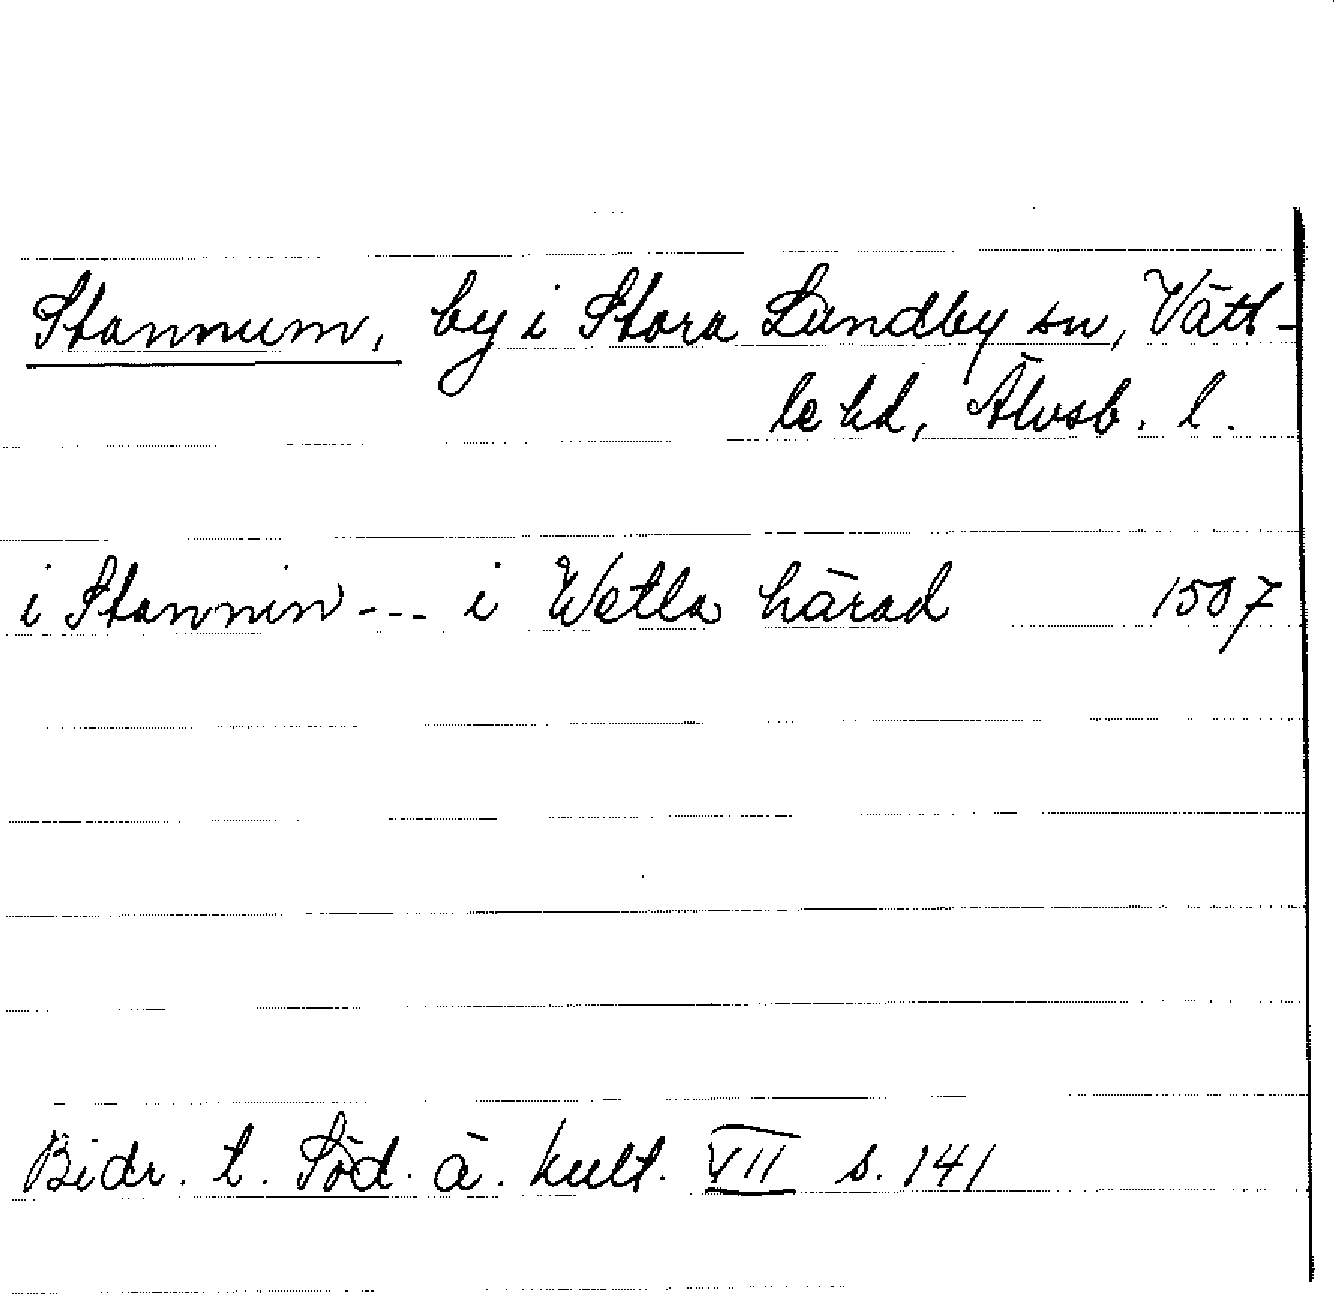 Stannum, by i Stora Lundby sn, Vätt-
le hd, Älvsb. l.
i Stannin --- i Wetla härad 1507
Bidr. t. Söd. ä. kult. VII s. 141